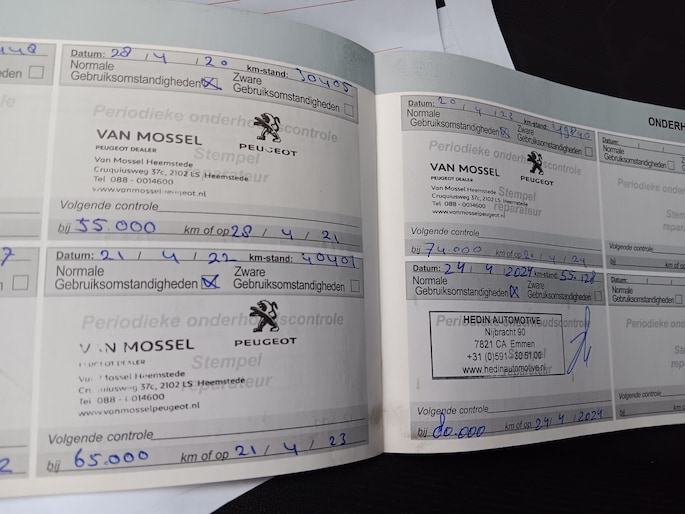 Datum: 28 / 4 / 20 km-stand: 30405
Normale
Gebruiksomstandigheden
Zware
Gebruiksomstandigheden
Periodieke onderhoudscontrole
VAN MOSSEL
PEUGEOT DEALER
PEUGEOT
Van Mossel Heemstede
Cruquiusweg 37c, 2102 LS Heemstede
Tel 088 - 0014600
www.vanmosselpeugeot.nl
Stempel
reparateur
Volgende controle
bij 55.000 km of op 28 / 4 / 21
Datum: 21 / 4 / 22 km-stand: 40401
Normale
Gebruiksomstandigheden
Zware
Gebruiksomstandigheden
Periodieke onderhoudscontrole
MOSSEL
PEUGEOT
Mossel Heemstede
37c, 2102 LS Heemstede
Tel 088 - 0014600
www.vanmosselpeugeot.nl
Stempel
reparateur
Volgende controle
bij 65.000 km of op 21 / 4 / 23
Datum: 20 / 4 / 23 km-stand: 49840
Normale
Gebruiksomstandigheden
Zware
Gebruiksomstandigheden
Periodieke onderhoudscontrole
VAN MOSSEL
PEUGEOT DEALER
PEUGEOT
Van Mossel Heemstede
Cruquiusweg 37c, 2102 LS Heemstede
Tel 088 - 0014600
www.vanmosselpeugeot.nl
Stempel
reparateur
Volgende controle
bij 74.000 km of op 20 / 4 / 24
Datum: 24 / 4 / 2024 km-stand: 55.128
Normale
Gebruiksomstandigheden
Zware
Gebruiksomstandigheden
Periodieke onderhoudscontrole
HEDIN AUTOMOTIVE
Nijbracht 90
7821 CA Emmen
+31 (0)591 - 30 51 00
www.hedinautomotive.nl
Stempel
reparateur
Volgende controle
bij 80.000 km of op 24 / 4 / 2024
ONDERH
Datum: / /
Normale
Gebruiksomstandigheden
Periodieke
Volgende controle
bij
Datum: / /
Normale
Gebruiksomstandigheden
Periodieke
Volgende controle
bij